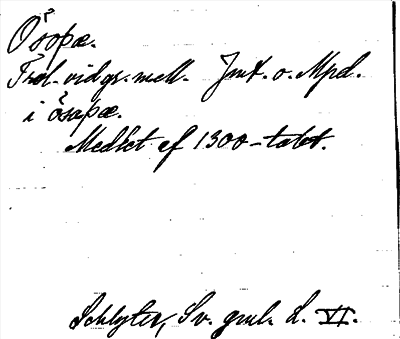 Ösopæ.
Trol. vid gr. mell. Jmt. o. Mpd.
i ösapæ.
Medlet af 1300-talet.
Schlyter, Sv. gml. L. VI.